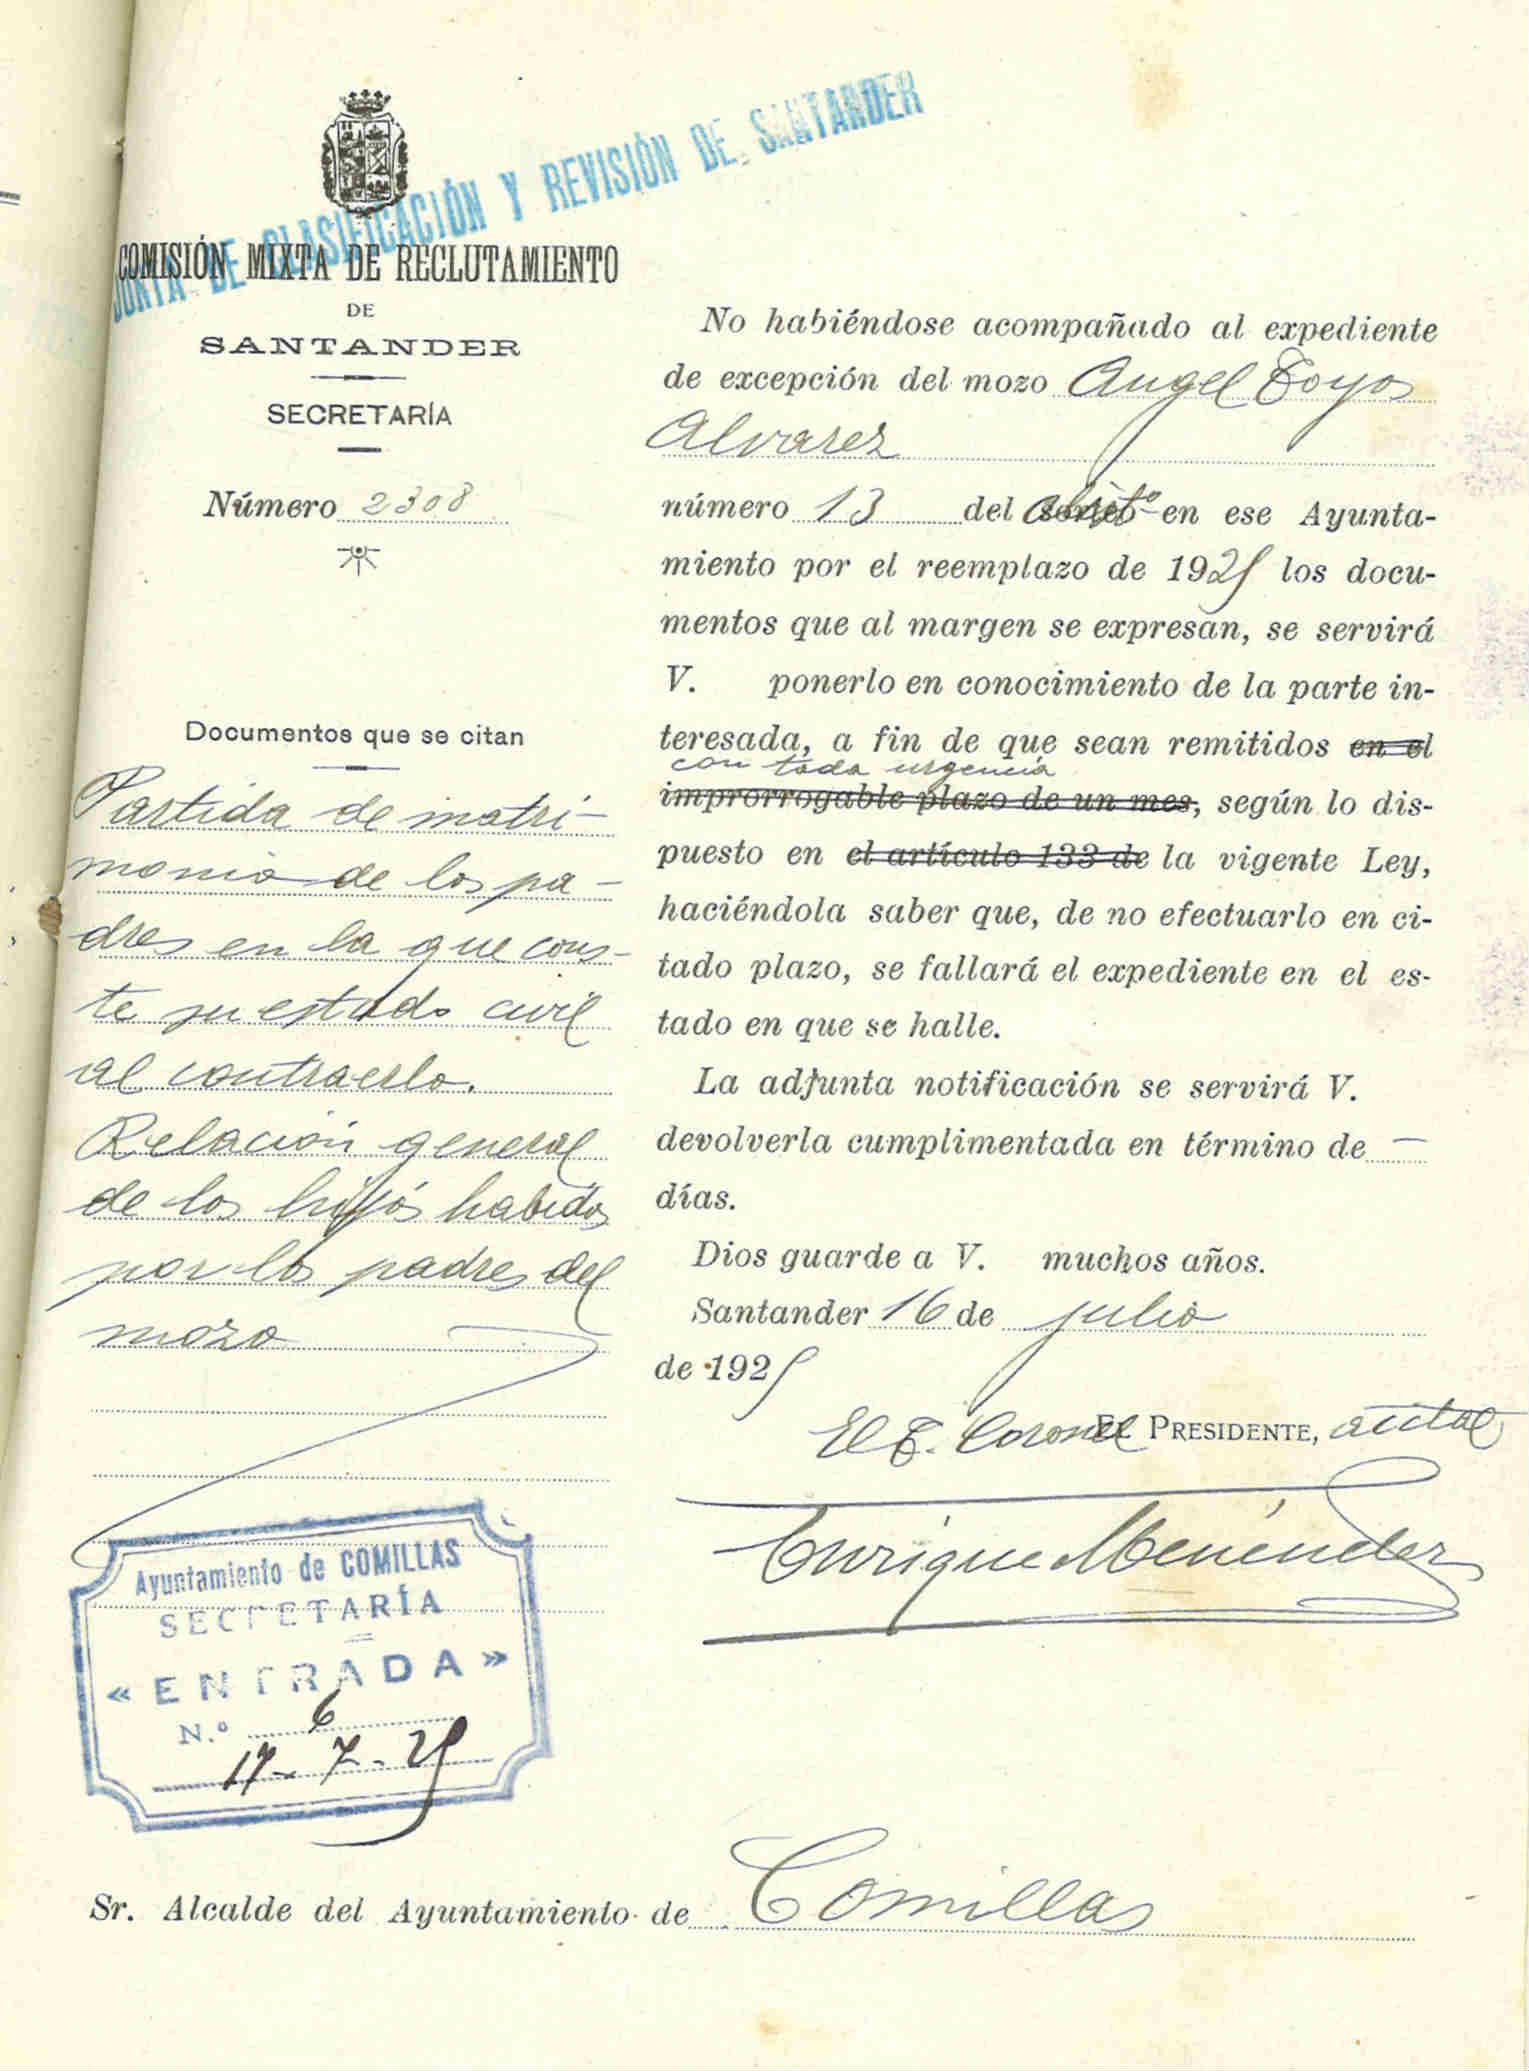 JUNTA DE CLASIFICACIÓN Y REVISIÓN DE SANTANDER
COMISIÓN MIXTA DE RECLUTAMIENTO
DE
SANTANDER
SECRETARÍA
Número 2308
Documentos que se citan
Partida de matri-
monio de los pa-
dres en la que cons-
te su estado civil
al contraerlo.
Relación general
de los hijos habidos
por los padres del
mozo
Ayuntamiento de COMILLAS
SECRETARÍA
«ENTRADA»
N.º 6
17-7-25
No habiéndose acompañado al expediente
de excepción del mozo Angel Toyos
Alvarez
número 13 del en ese Ayunta-
miento por el reemplazo de 1925 los docu-
mentos que al margen se expresan, se servirá
V. ponerlo en conocimiento de la parte in-
teresada, a fin de que sean remitidos en el
con toda urgencia
improrrogable plazo de un mes, según lo dis-
puesto en el artículo 133 de la vigente Ley,
haciéndola saber que, de no efectuarlo en ci-
tado plazo, se fallará el expediente en el es-
tado en que se halle.
La adjunta notificación se servirá V.
devolverla cumplimentada en término de —
días.
Dios guarde a V. muchos años.
Santander 16 de julio
de 1925
El T. Coronel EL PRESIDENTE, actal
Enrique Menéndez
Sr. Alcalde del Ayuntamiento de Comillas